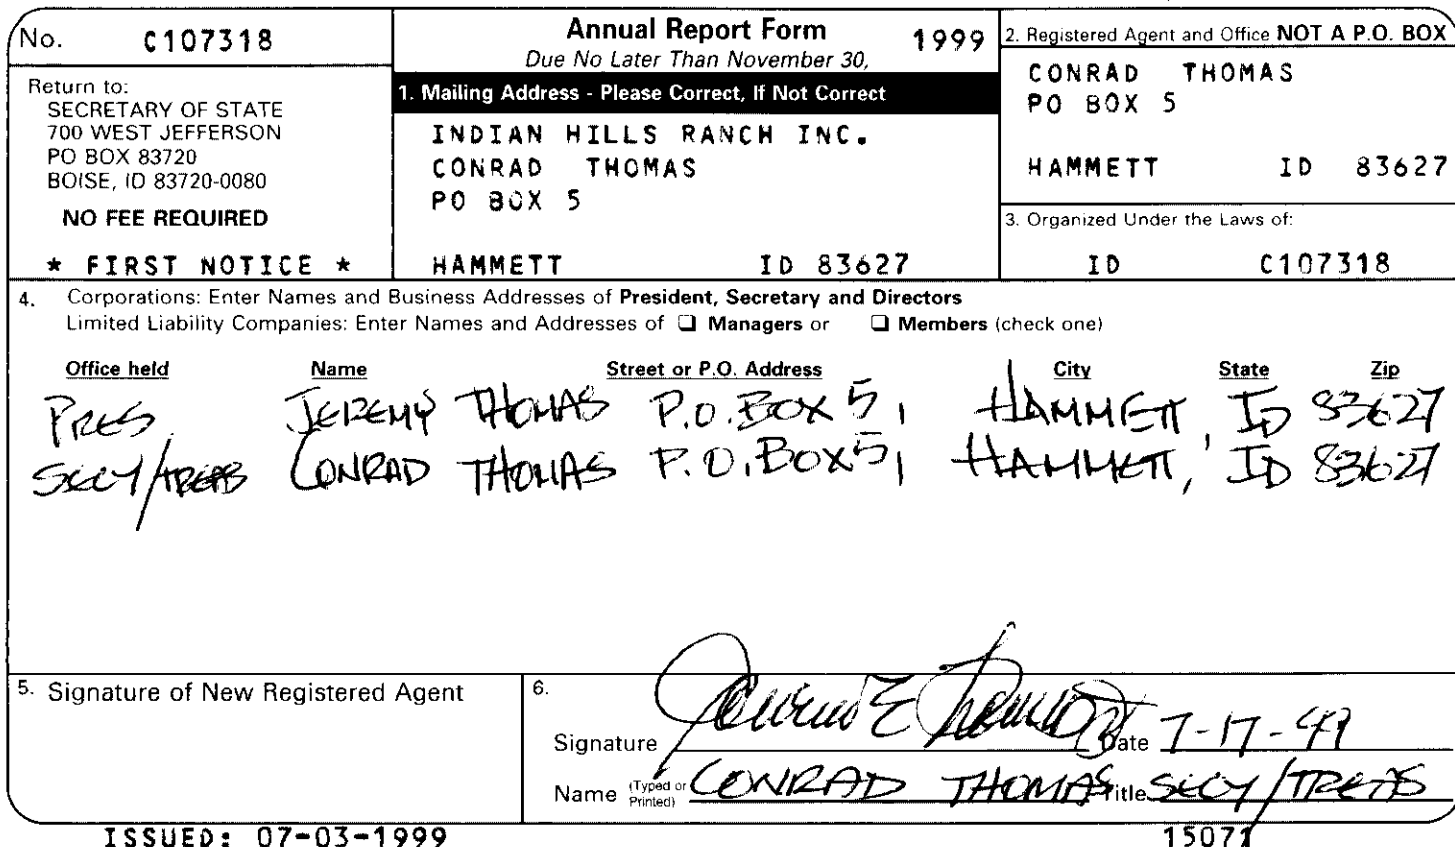 No. C107318
Return to:
SECRETARY OF STATE
700 WEST JEFFERSON
PO BOX 83720
BOISE, ID 83720-0080
NO FEE REQUIRED
* FIRST NOTICE *
Annual Report Form 1999
Due No Later Than November 30,
1. Mailing Address - Please Correct, If Not Correct
INDIAN HILLS RANCH INC.
CONRAD THOMAS
PO BOX 5
HAMMETT ID 83627
2. Registered Agent and Office NOT A P.O. BOX
CONRAD THOMAS
PO BOX 5
HAMMETT ID 83627
3. Organized Under the Laws of:
ID C107318
4. Corporations: Enter Names and Business Addresses of President, Secretary and Directors
Limited Liability Companies: Enter Names and Addresses of ❑ Managers or ❑ Members (check one)
Office held Name Street or P.O. Address City State Zip
PRES. JEREMY THOMAS P.O. BOX 5, HAMMETT, ID 83627
SECY/TREAS CONRAD THOMAS P.O. BOX 5, HAMMETT, ID 83627
5. Signature of New Registered Agent
6.
Signature Date 7-17-99
Name (Typed or Printed) CONRAD THOMAS Title SECY/TREAS
ISSUED: 07-03-1999 15071